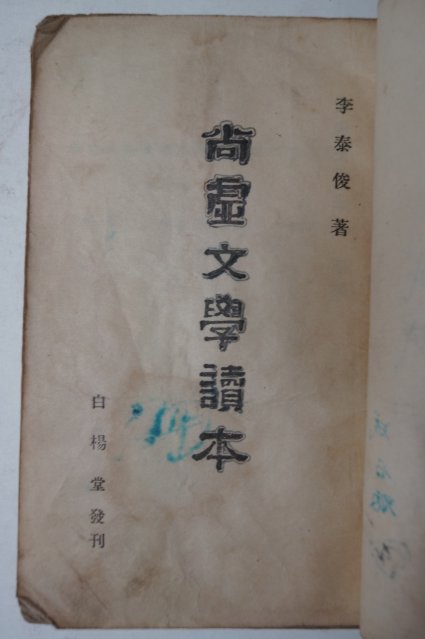 李泰俊著
尙虛文學讀本
白楊堂發刊